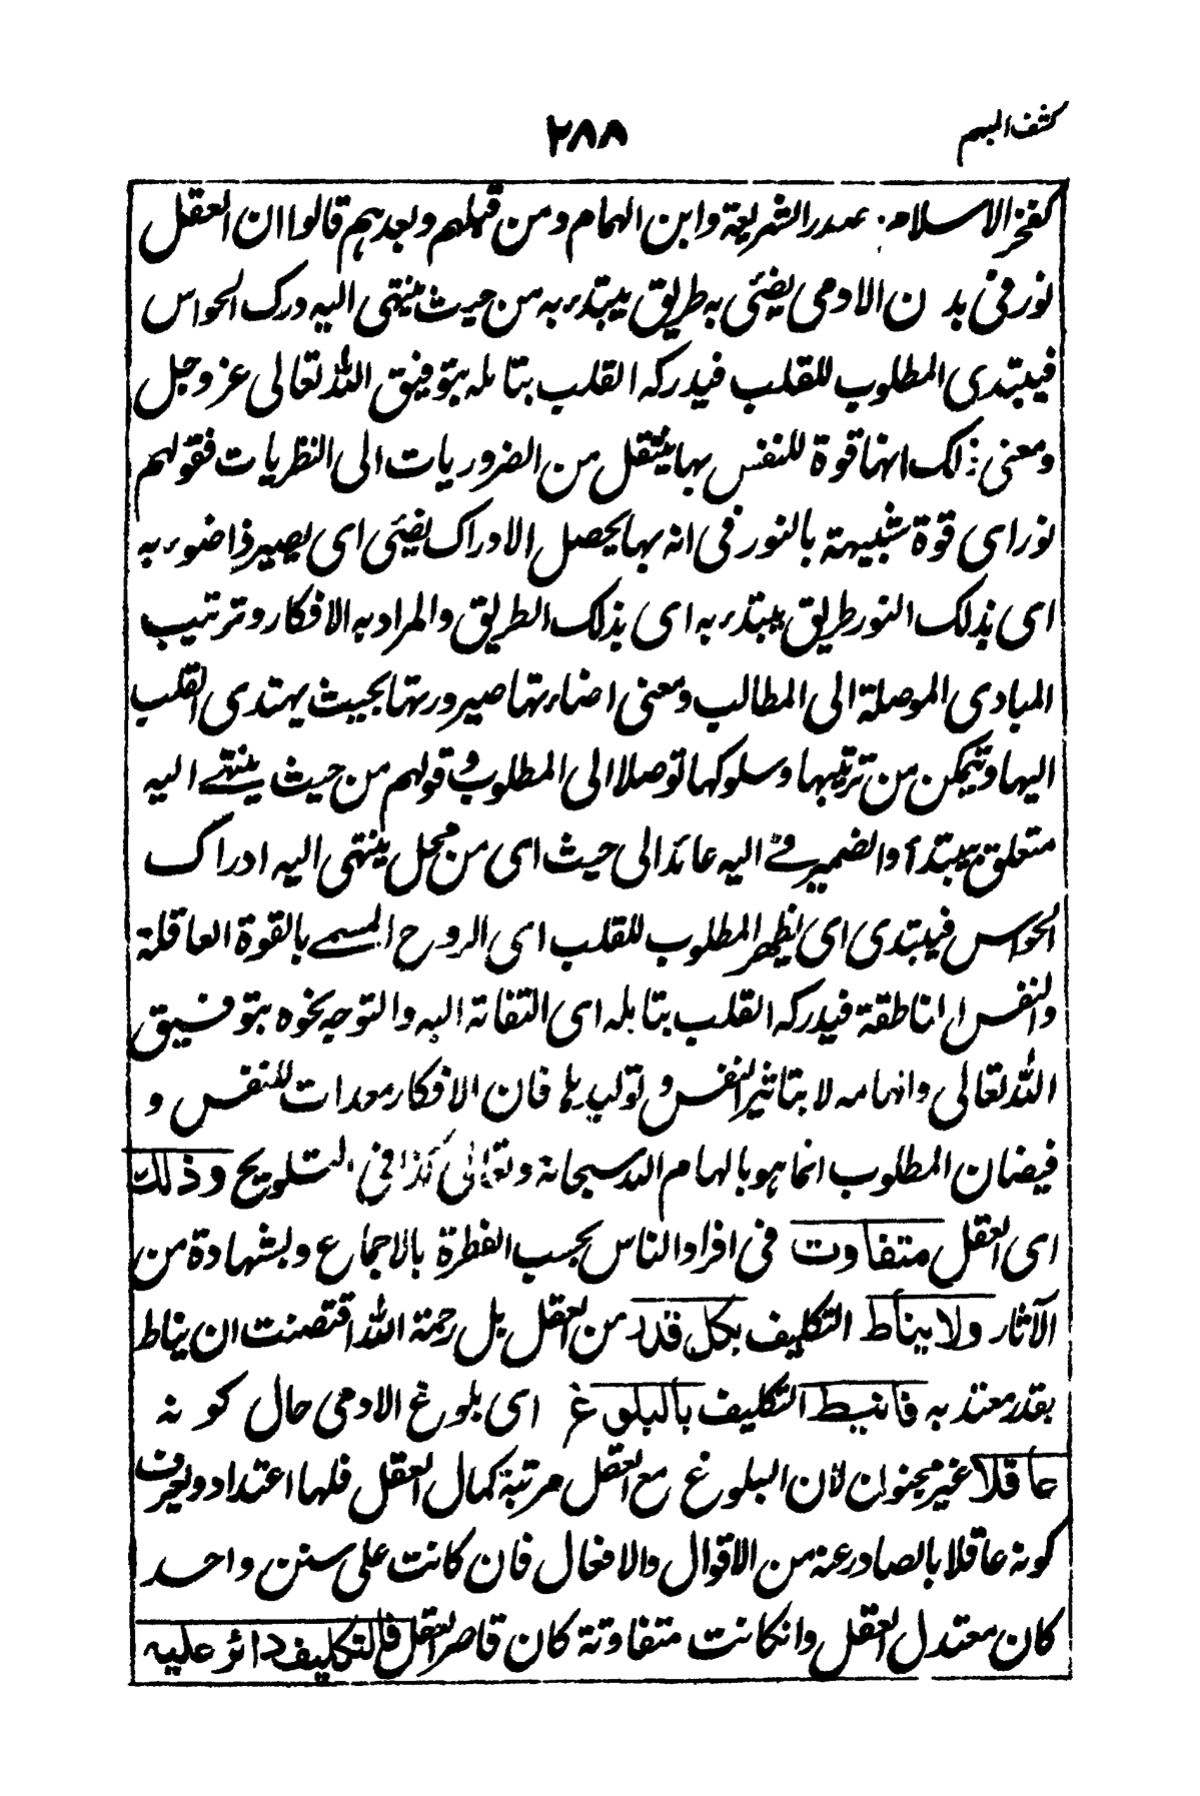 كشف المبهم
٢٨٨
كفخر الاسلام و صدر الشريعة وابن الهمام ومن قبلهم وبعدهم قالوا ان العقل
نور فى بدن الادمى يضئى به طريق يبتدء به من حيث ينتهى اليه درك الحواس
فيبتدى المطلوب للقلب فيدركه القلب بتامله بتوفيق الله تعالى عز وجل
ومعنى ذلك انها قوة للنفس بها ينتقل من الضروريات الى النظريات فقولهم
نور اى قوة شبيهة بالنور فى انه بها يحصل الادراك يضئى اى يصير ذا ضوء به
اى بذلك النور طريق يبتدء به اى بذلك الطريق والمراد به الافكار وترتيب
المبادى الموصلة الى المطالب ومعنى اضاءتها صيرورتها بحيث يهتدى القلب
اليها ويتمكن من ترتيبها وسلوكها توصلا الى المطلوب وقولهم من حيث ينتهے اليه
متعلق بيبتدأ والضمير فے اليه عائد الى حيث اى من محل ينتهى اليه ادراك
الحواس فيبتدى اى يظهر المطلوب للقلب اى الروح المسمے بالقوة العاقلة
والنفس الناطقة فيدركه القلب بتامله اى التفاتة اليه والتوجه نحوه بتوفيق
الله تعالى والهامه لا بتاثير النفس و توليدها فان الافكار معدات للنفس و
فيضان المطلوب انما هو بالهام الله سبحانه وتعالى كذا فى التلويح وذلك
اى العقل متفاوت فى افراد الناس بحسب الفطرة بالاجماع وبشهادة من
الآثار ولا يناط التكليف بكل قدر من العقل بل رحمة الله اقتضت ان يناط
بقدر معتد به فانيط التكليف بالبلوغ اى بلوغ الادمى حال كونه
عاقلا غير مجنون لان البلوغ مع العقل مرتبة كمال العقل فلها اعتداد ويعرف
كونه عاقلا بالصادر عنه من الاقوال والافعال فان كانت على سنن واحد
كان معتدل العقل وانكانت متفاوتة كان قاصر العقل فالتكليف دائر عليه